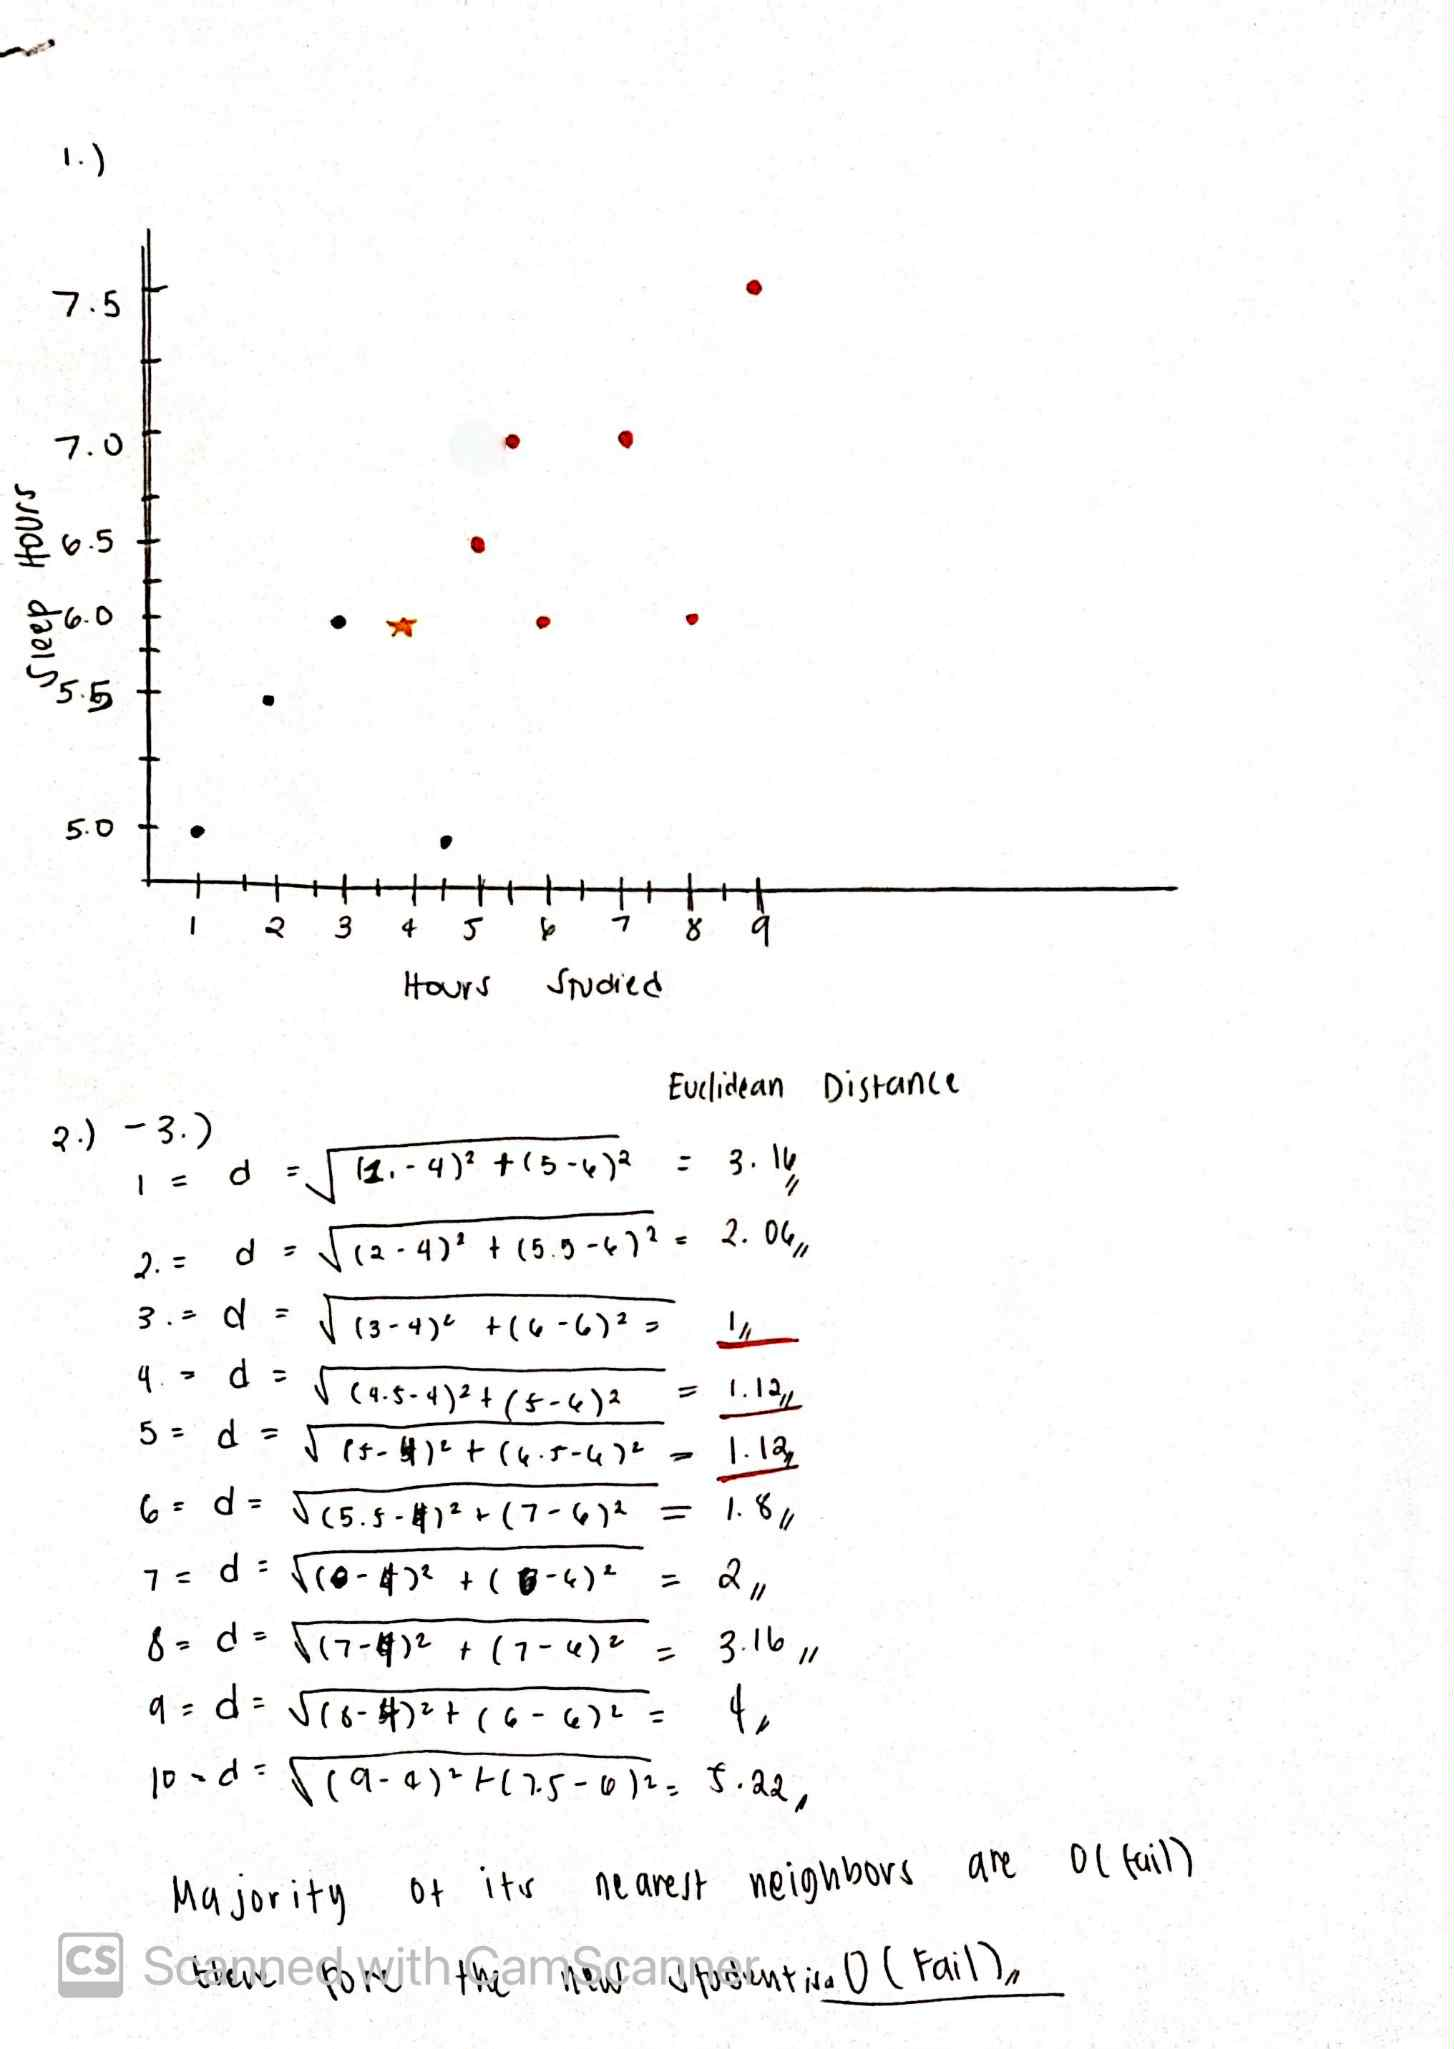 1.)
7.5
7.0
6.5
6.0
5.5
5.0
Sleep Hours
1 2 3 4 5 6 7 8 9
Hours Studied
Euclidean Distance
2.) - 3.)
1 = d = √(1.-4)² + (5-6)² = 3.16
2. = d = √(2-4)² + (5.5-6)² = 2.06
3. = d = √(3-4)² + (6-6)² = 1
4. = d = √(4.5-4)² + (5-6)² = 1.12
5 = d = √(5-4)² + (6.5-6)² = 1.12
6 = d = √(5.5-4)² + (7-6)² = 1.8
7 = d = √(6-4)² + (6-6)² = 2
8 = d = √(7-4)² + (7-6)² = 3.16
9 = d = √(8-4)² + (6-6)² = 4
10 = d = √(9-4)² + (7.5-6)² = 5.22
Majority of its nearest neighbors are 0 (fail)
there fore the new student is 0 (Fail)
CS Scanned with CamScanner